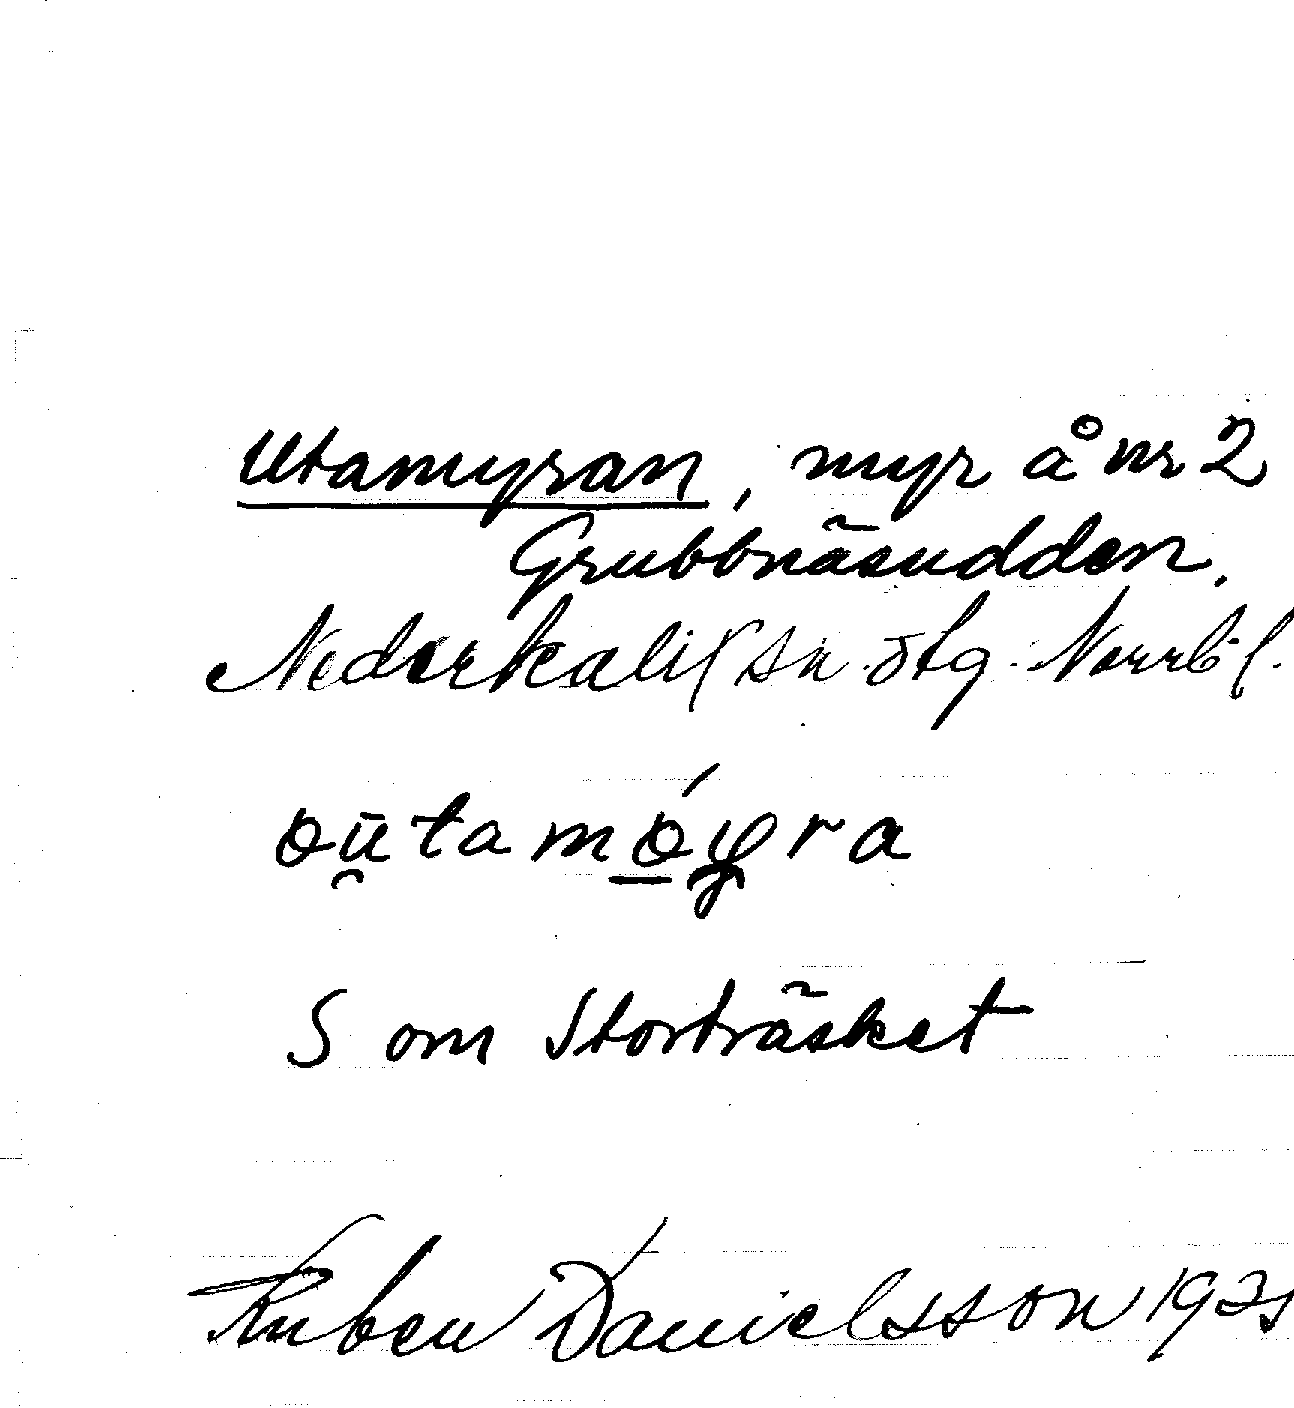 Utamyran, myr å nr 2
Grubbnäsudden.
Nederkalix sn. östg. Norrb. l.
S om Storträsket
Ruben Danielsson